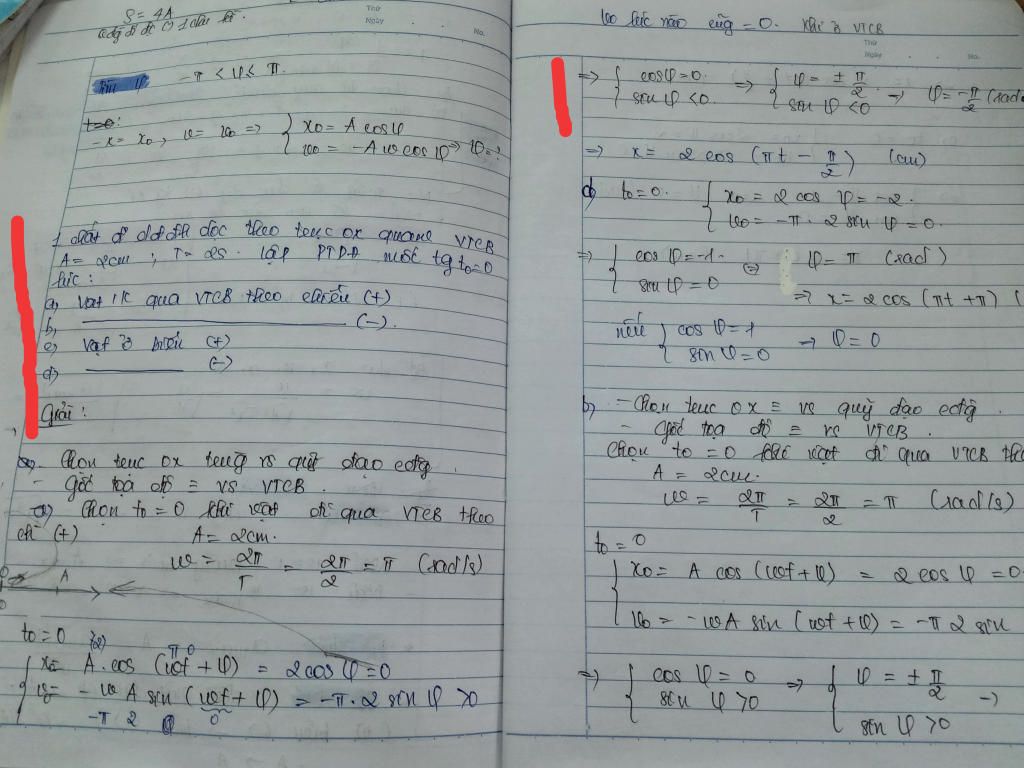 S = 4A
Thứ
Ngày
No.
Tìm φ   -π < φ < π.
t=0:
- x = x₀, v = v₀ => { x₀ = A cosφ
v₀ = -Aω cosφ => φ = ?
1 chất đ dđđh dọc theo trục ox quanh VTCB
A = 2cm ; T = 2s. lập PTDĐ mốc tg t₀=0
lúc:
a) vật đi qua VTCB theo chiều (+)
b) ———————— (-).
c) vật ở biên (+)
d) ———— (-)
Giải:
- Chọn trục ox trùng vs quỹ đạo cđg.
- Gốc toạ độ ≡ vs VTCB.
a) Chọn t₀ = 0 khi vật đi qua VTCB theo
ch (+)   A = 2cm.
ω = 2π/T = 2π/2 = π (rad/s)
A
t₀ = 0   (2)   π 0
{ x₀ = A.cos (ωt + φ) = 2cosφ = 0
v₀ = -ωA sin (ωt + φ) = -π.2 sin φ > 0
-π 2   0
lúc nào cũg = 0. Khi ở VTCB
Thứ
Ngày
No.
=> { cosφ = 0.   => { φ = ± π/2   → φ = -π/2 (rad
sin φ < 0   sin φ < 0
=> x = 2 cos (πt - π/2) (cm)
d) t₀ = 0.   { x₀ = 2 cos φ = -2.
v₀ = -π. 2 sin φ = 0.
=> { cos φ = -1.   <=>   φ = π (rad)
sin φ = 0   => x = 2 cos (πt + π) (
nếu { cos φ = 1   → φ = 0
sin φ = 0
b) - Chọn trục ox ≡ vs quỹ đạo cđg.
- Gốc tọa độ ≡ vs VTCB.
Chọn t₀ = 0 khi vật đi qua VTCB the
A = 2cm.
ω = 2π/T = 2π/2 = π (rad/s)
t₀ = 0
{ x₀ = A cos (ωt + φ) = 2 cos φ = 0
v₀ = -ωA sin (ωt + φ) = -π 2 sin
=> { cos φ = 0   => { φ = ± π/2   →
sin φ > 0   sin φ > 0